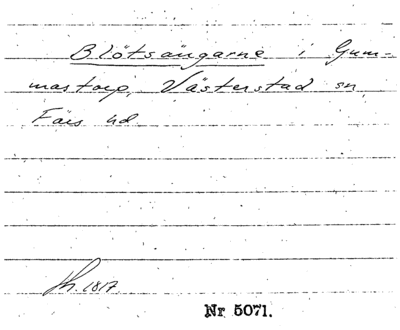 Blötsängarne i Gum-
mastorp, Västerstad sn
Färs hd
Th. 1817
Nr 5071.